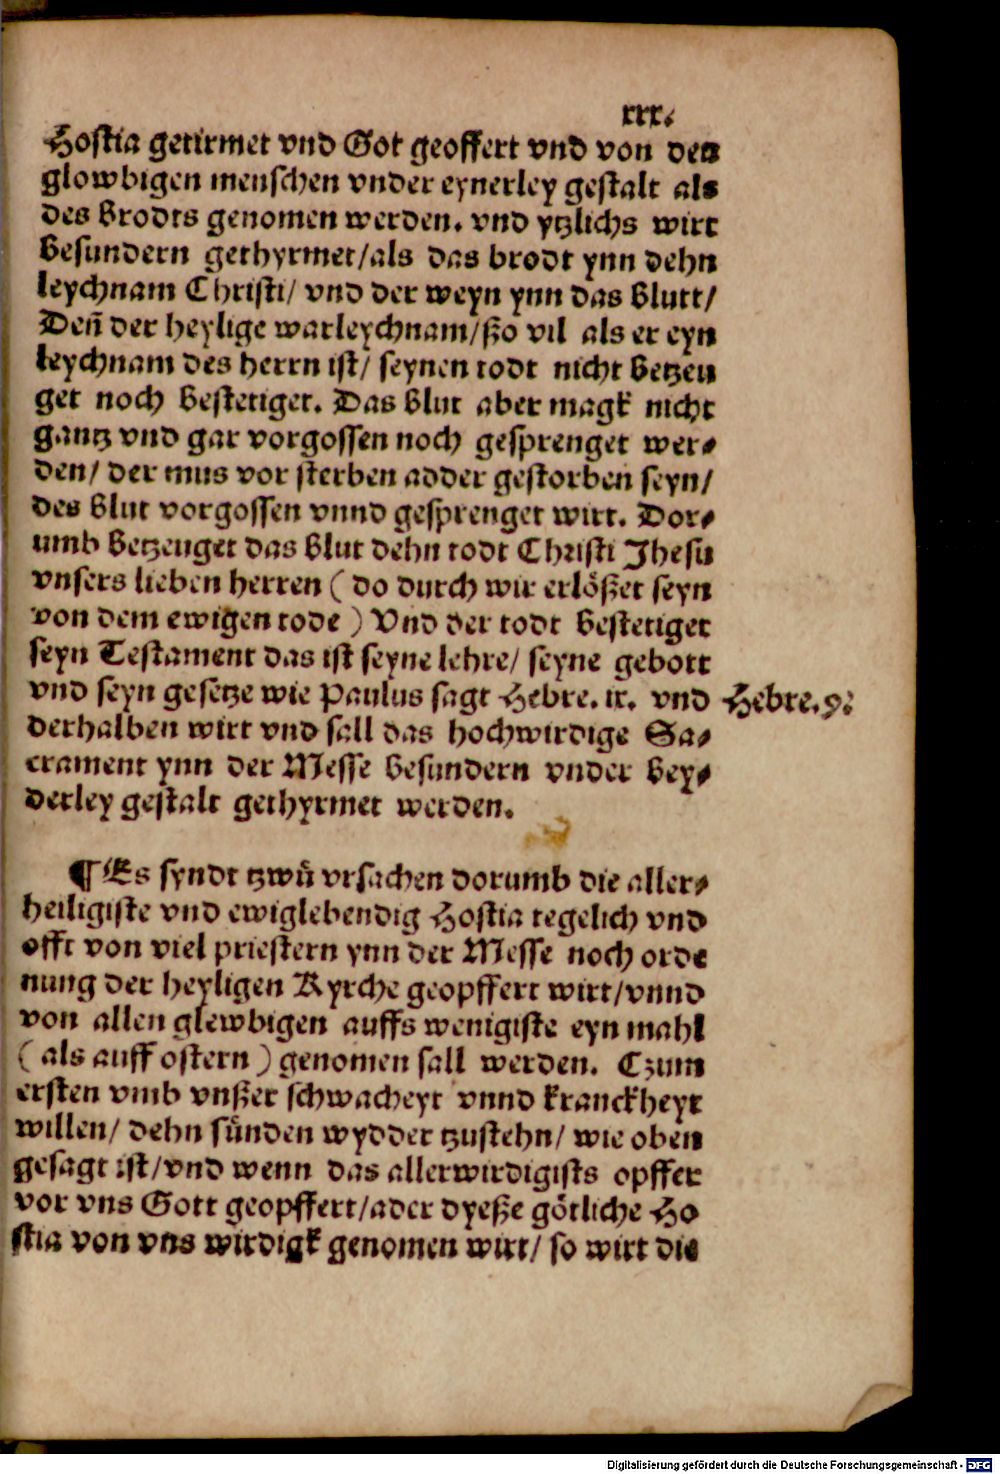 xxx.
Hostia getirmet vnd Got geoffert vnd von den
glowbigen menschen vnder eynerley gestalt als
des Brodts genomen werden. vnd ytzlichs wirt
besundern gethyrmet/als das brodt ynn dehn
leychnam Christi/ vnd der weyn ynn das Blutt/
Deñ der heylige warleychnam/ßo vil als er eyn
leychnam des herrn ist/ seynen todt nicht betzeu
get noch bestetiget. Das Blut aber magk nicht
gantz vnd gar vorgossen noch gesprenget wer⸗
den/ der mus vor sterben adder gestorben seyn/
des blut vorgossen vnnd gesprenget wirt. Dor⸗
umb betzeuget das blut dehn todt Christi Jhesu
vnsers lieben herren ( do durch wir erlößet seyn
von dem ewigen tode ) Vnd der todt bestetiget
seyn Testament das ist seyne lehre/ seyne gebott
vnd seyn gesetze wie Paulus sagt Hebre. ix. vnd
Hebre.9:
derhalben wirt vnd sall das hochwirdige Sa⸗
crament ynn der Messe besundern vnder bey⸗
derley gestalt gethyrmet werden.
¶ Es syndt tzwů vrsachen dorumb die aller⸗
heiligiste vnd ewiglebendig Hostia tegelich vnd
offt von viel priestern ynn der Messe noch orde
nung der heyligen Kyrche geopffert wirt/vnnd
von allen glewbigen auffs wenigiste eyn mahl
( als auff ostern ) genomen sall werden. Czum
ersten vmb vnßer schwacheyt vnnd kranckheyt
willen/ dehn sůnden wydder tzustehn/ wie oben
gesagt ist/vnd wenn das allerwirdigists opffer
vor vns Gott geopffert/ader dyeße götliche Ho
stia von vns wirdigk genomen wirt/ so wirt die
Digitalisierung gefördert durch die Deutsche Forschungsgemeinschaft - DFG